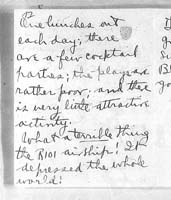 One lunches out
each day; there
are a few cocktail
parties; the plays are
rather poor, and there
is very little attractive
activity.
What a terrible thing
the R101 airship! It
depressed the whole
world!